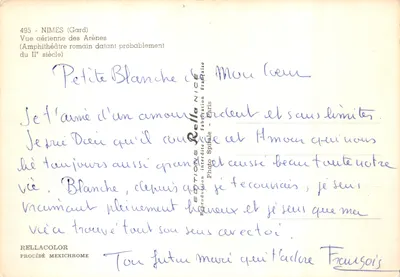 495 - NIMES (Gard)
Vue aérienne des Arènes
(Amphithéâtre romain datant probablement
du IIe siècle)
Petite Blanche de Mon Cœur
Je t'aime d'un amour ardent et sans limites.
Je prie Dieu qu'il cet Amour qui nous
lie toujours aussi grand et aussi beau toute notre
vie. Blanche, depuis que je te connais, je suis
vraiment pleinement heureux et je sens que ma
vie a trouvé tout son sens avec toi.
Ton futur mari qui t'adore François
EDITIONS Rella NICE
Reproduction Interdite Fabrication Française
RELLACOLOR
PROCÉDÉ MEXICHROME